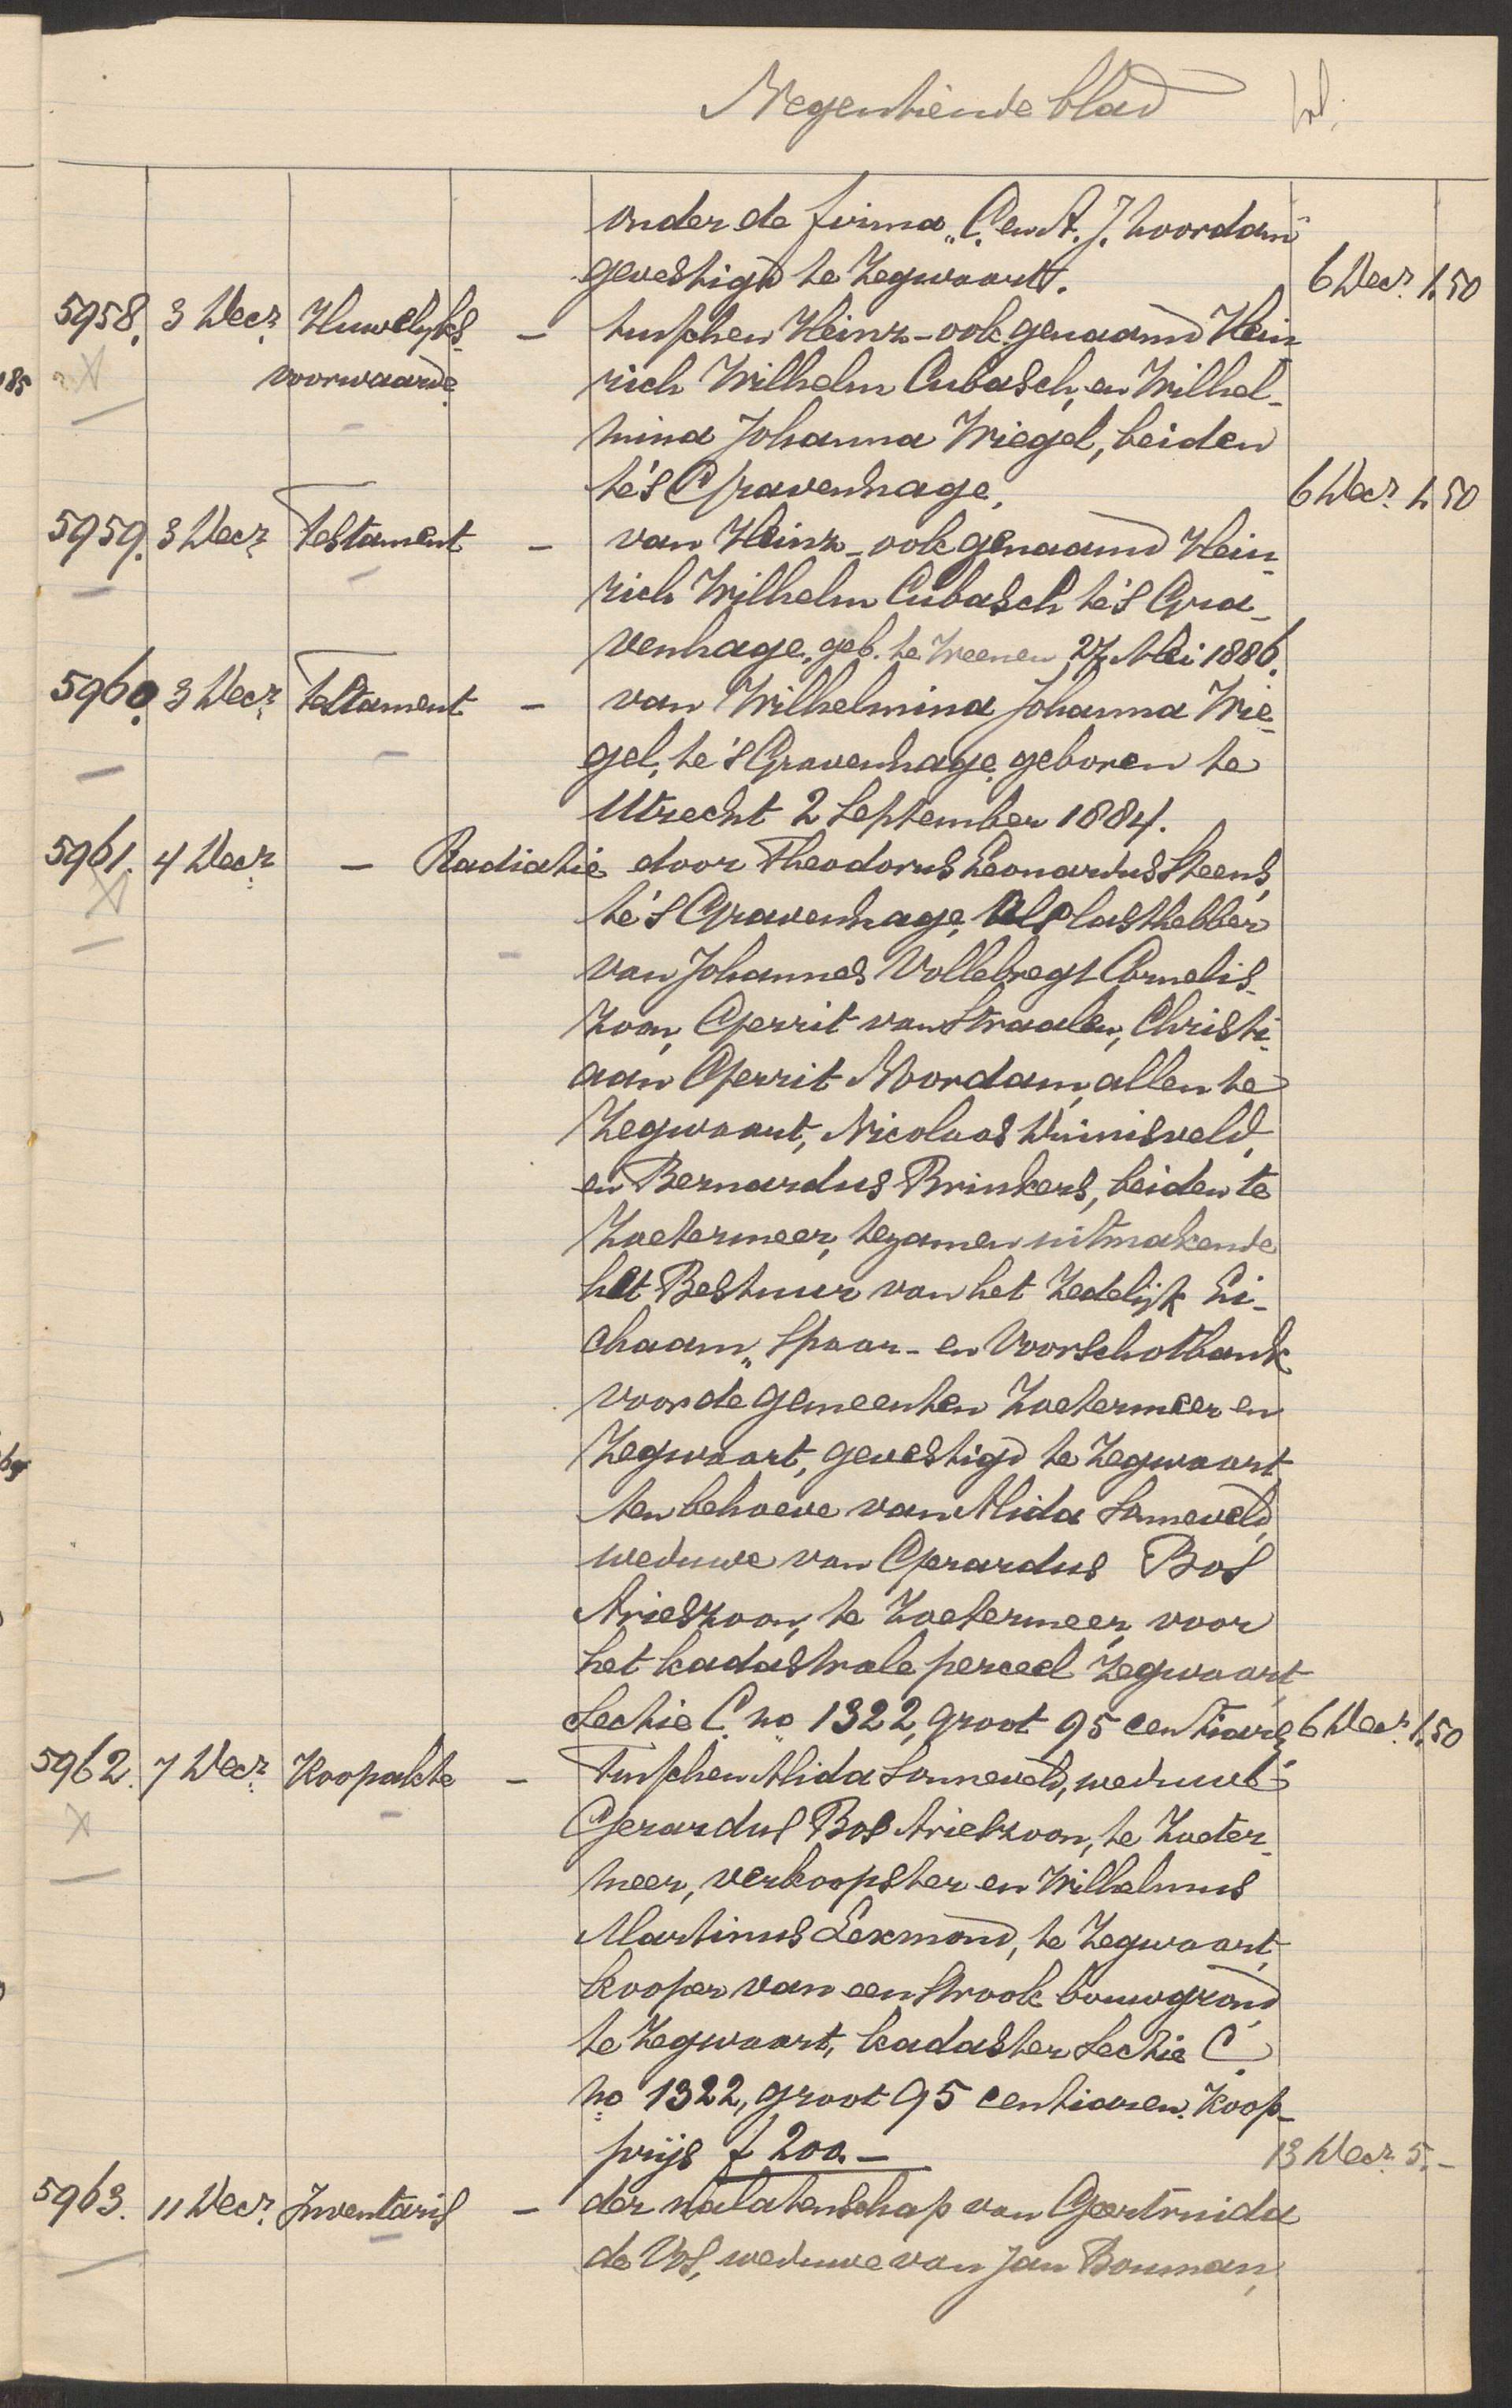 Negentiende blad
onder de firma „C. en A. J. Noordam"
gevestigd te Zegwaart. 6 Decr. 1.50
5958. 3 Decr. Huwelijks- – tusschen Heinz – ook genaamd Hein-
voorwaarde rich Wilhelm Cubasch, en Wilhel-
mina Johanna Wiegel, beiden
te 's Gravenhage. 6 Decr. 1.50
5959. 3 Decr. Testament – van Heinz – ook genaamd Hein-
rich Wilhelm Cubasch te 's Gra-
venhage, geb. te Weenen 27 Mei 1886.
5960. 3 Decr. Testament – van Wilhelmina Johanna Wie-
gel, te 's Gravenhage geboren te
Utrecht 2 September 1884.
5961. 4 Decr. – Radiatie door Theodorus Leonardus Steens,
te 's Gravenhage, als lasthebber
van Johannes Vollebregt Cornelis-
zoon, Gerrit van Straalen, Christi-
aan Gerrit Noordam, allen te
Zegwaart, Nicolaas Duinisveld,
en Bernardus Brinkers, beiden te
Zoetermeer, tezamen uitmakende
het Bestuur van het Zedelijk Li-
chaam „Spaar- en Voorschotbank
voor de gemeenten Zoetermeer en
Zegwaart, gevestigd te Zegwaart
ten behoeve van Alida Sonneveld,
weduwe van Gerardus Bos
Arieszoon, te Zoetermeer, voor
het kadastrale perceel Zegwaart,
Sectie C. no 1322, groot 95 centiare 6 Decr. 1.50
5962. 7 Decr. Koopakte – Tusschen Alida Sonneveld, weduwe
Gerardus Bos Arieszoon, te Zoeter-
meer, verkoopster en Wilhelmus
Martinus Lexmond, te Zegwaart,
kooper van een strook bouwgrond
te Zegwaart, kadaster Sectie C.
no 1322, groot 95 centiaren. Koop-
prijs f 200.– 13 Decr. 5.–
5963. 11 Decr. Inventaris – der nalatenschap van Geertruida
de Vos, weduwe van Jan Bouman,